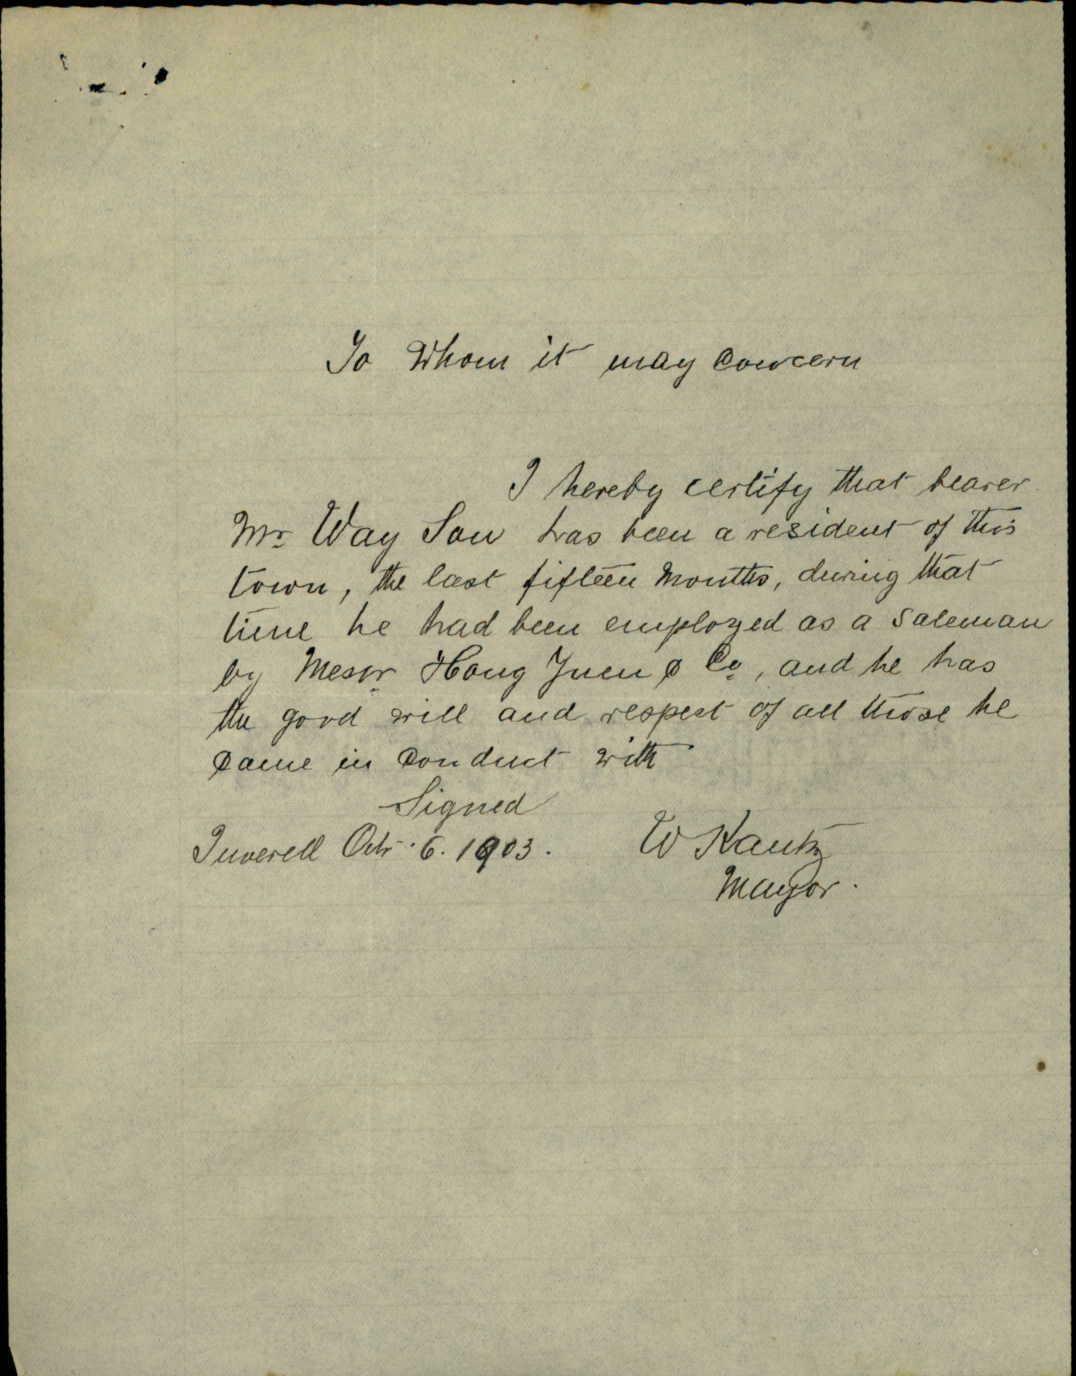 To Whom it may concern
I hereby certify that bearer
Mr Way Son has been a resident of this
town, the last fifteen months, during that
time he had been employed as a saleman
by Messr Hong Yuen & Co, and he has
the good will and respect of all those he
came in conduct with
Signed
Inverell Octr. 6. 1903. W Kautz
Mayor.